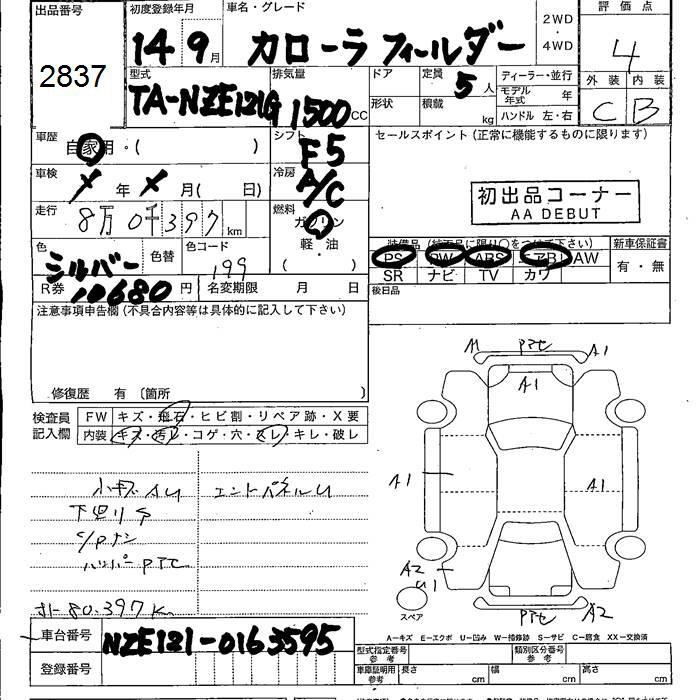 出品番号
2837
初度登録年月
14 9月
車名・グレード
カローラ フィールダー
2WD
4WD
評価点
4
型式
TA-NZE121G
排気量
1500 CC
ドア
定員
5人
形状
積載
kg
ディーラー・並行
モデル年式 年
ハンドル 左・右
外装 内装
C B
車歴
自家用・( )
シフト
F5
セールスポイント (正常に機能するものに限ります)
車検
年 月( 日)
冷房
A/C
初出品コーナー
AA DEBUT
走行
8万0千397km
燃料
ガソリン
軽・油
( )
色
シルバー
色替
色コード
199
装備品 (純正品に限り〇をつけて下さい)
PS PW ABS エアB AW
SR ナビ TV カワ
新車保証書
有・無
R券
10680 円
名変期限 月 日
後日品
注意事項申告欄 (不具合内容等は具体的に記入して下さい)
修復歴 有 〔箇所 〕
検査員
記入欄
FW キズ・飛石・ヒビ割・リペア跡・X要
内装 キズ・汚レ・コゲ・穴・スレ・キレ・破レ
小キズAU エンドパネルU
下回りS
バンパーPTC
オト 80,397K
PTC
A1
A1
A1
A1
A2
U1
PTC
A2
スペア
A-キズ E-エクボ U-凹み W-補修跡 S-サビ C-腐食 XX-交換済
車台番号
NZE121-0163595
登録番号
型式指定番号
参考
類別区分番号
参考
車庫証明用
参考
長さ cm
幅 cm
高さ cm